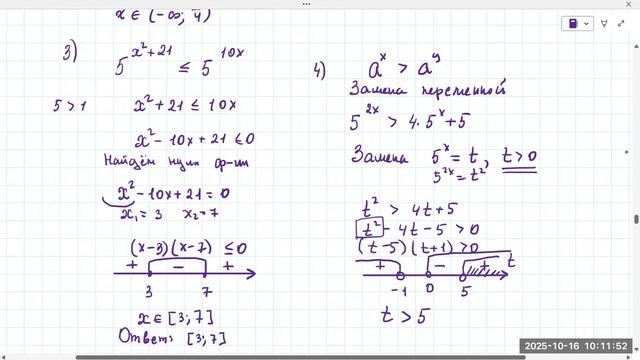 x ∈ (-∞; 4)
3) 5^(x²+21) ≤ 5^(10x)
5 > 1 x² + 21 ≤ 10x
x² - 10x + 21 ≤ 0
Найдём нули ф-ии
x² - 10x + 21 = 0
x₁ = 3 x₂ = 7
(x-3)(x-7) ≤ 0
+ - +
3 7
x ∈ [3; 7]
Ответ: [3; 7]
4) aˣ > aʸ
Замена переменной
5^(2x) > 4 · 5ˣ + 5
Замена 5ˣ = t, t > 0
5^(2x) = t²
t² > 4t + 5
t² - 4t - 5 > 0
(t-5)(t+1) > 0
+ - + t
-1 0 5
t > 5
2025-10-16 10:11:52